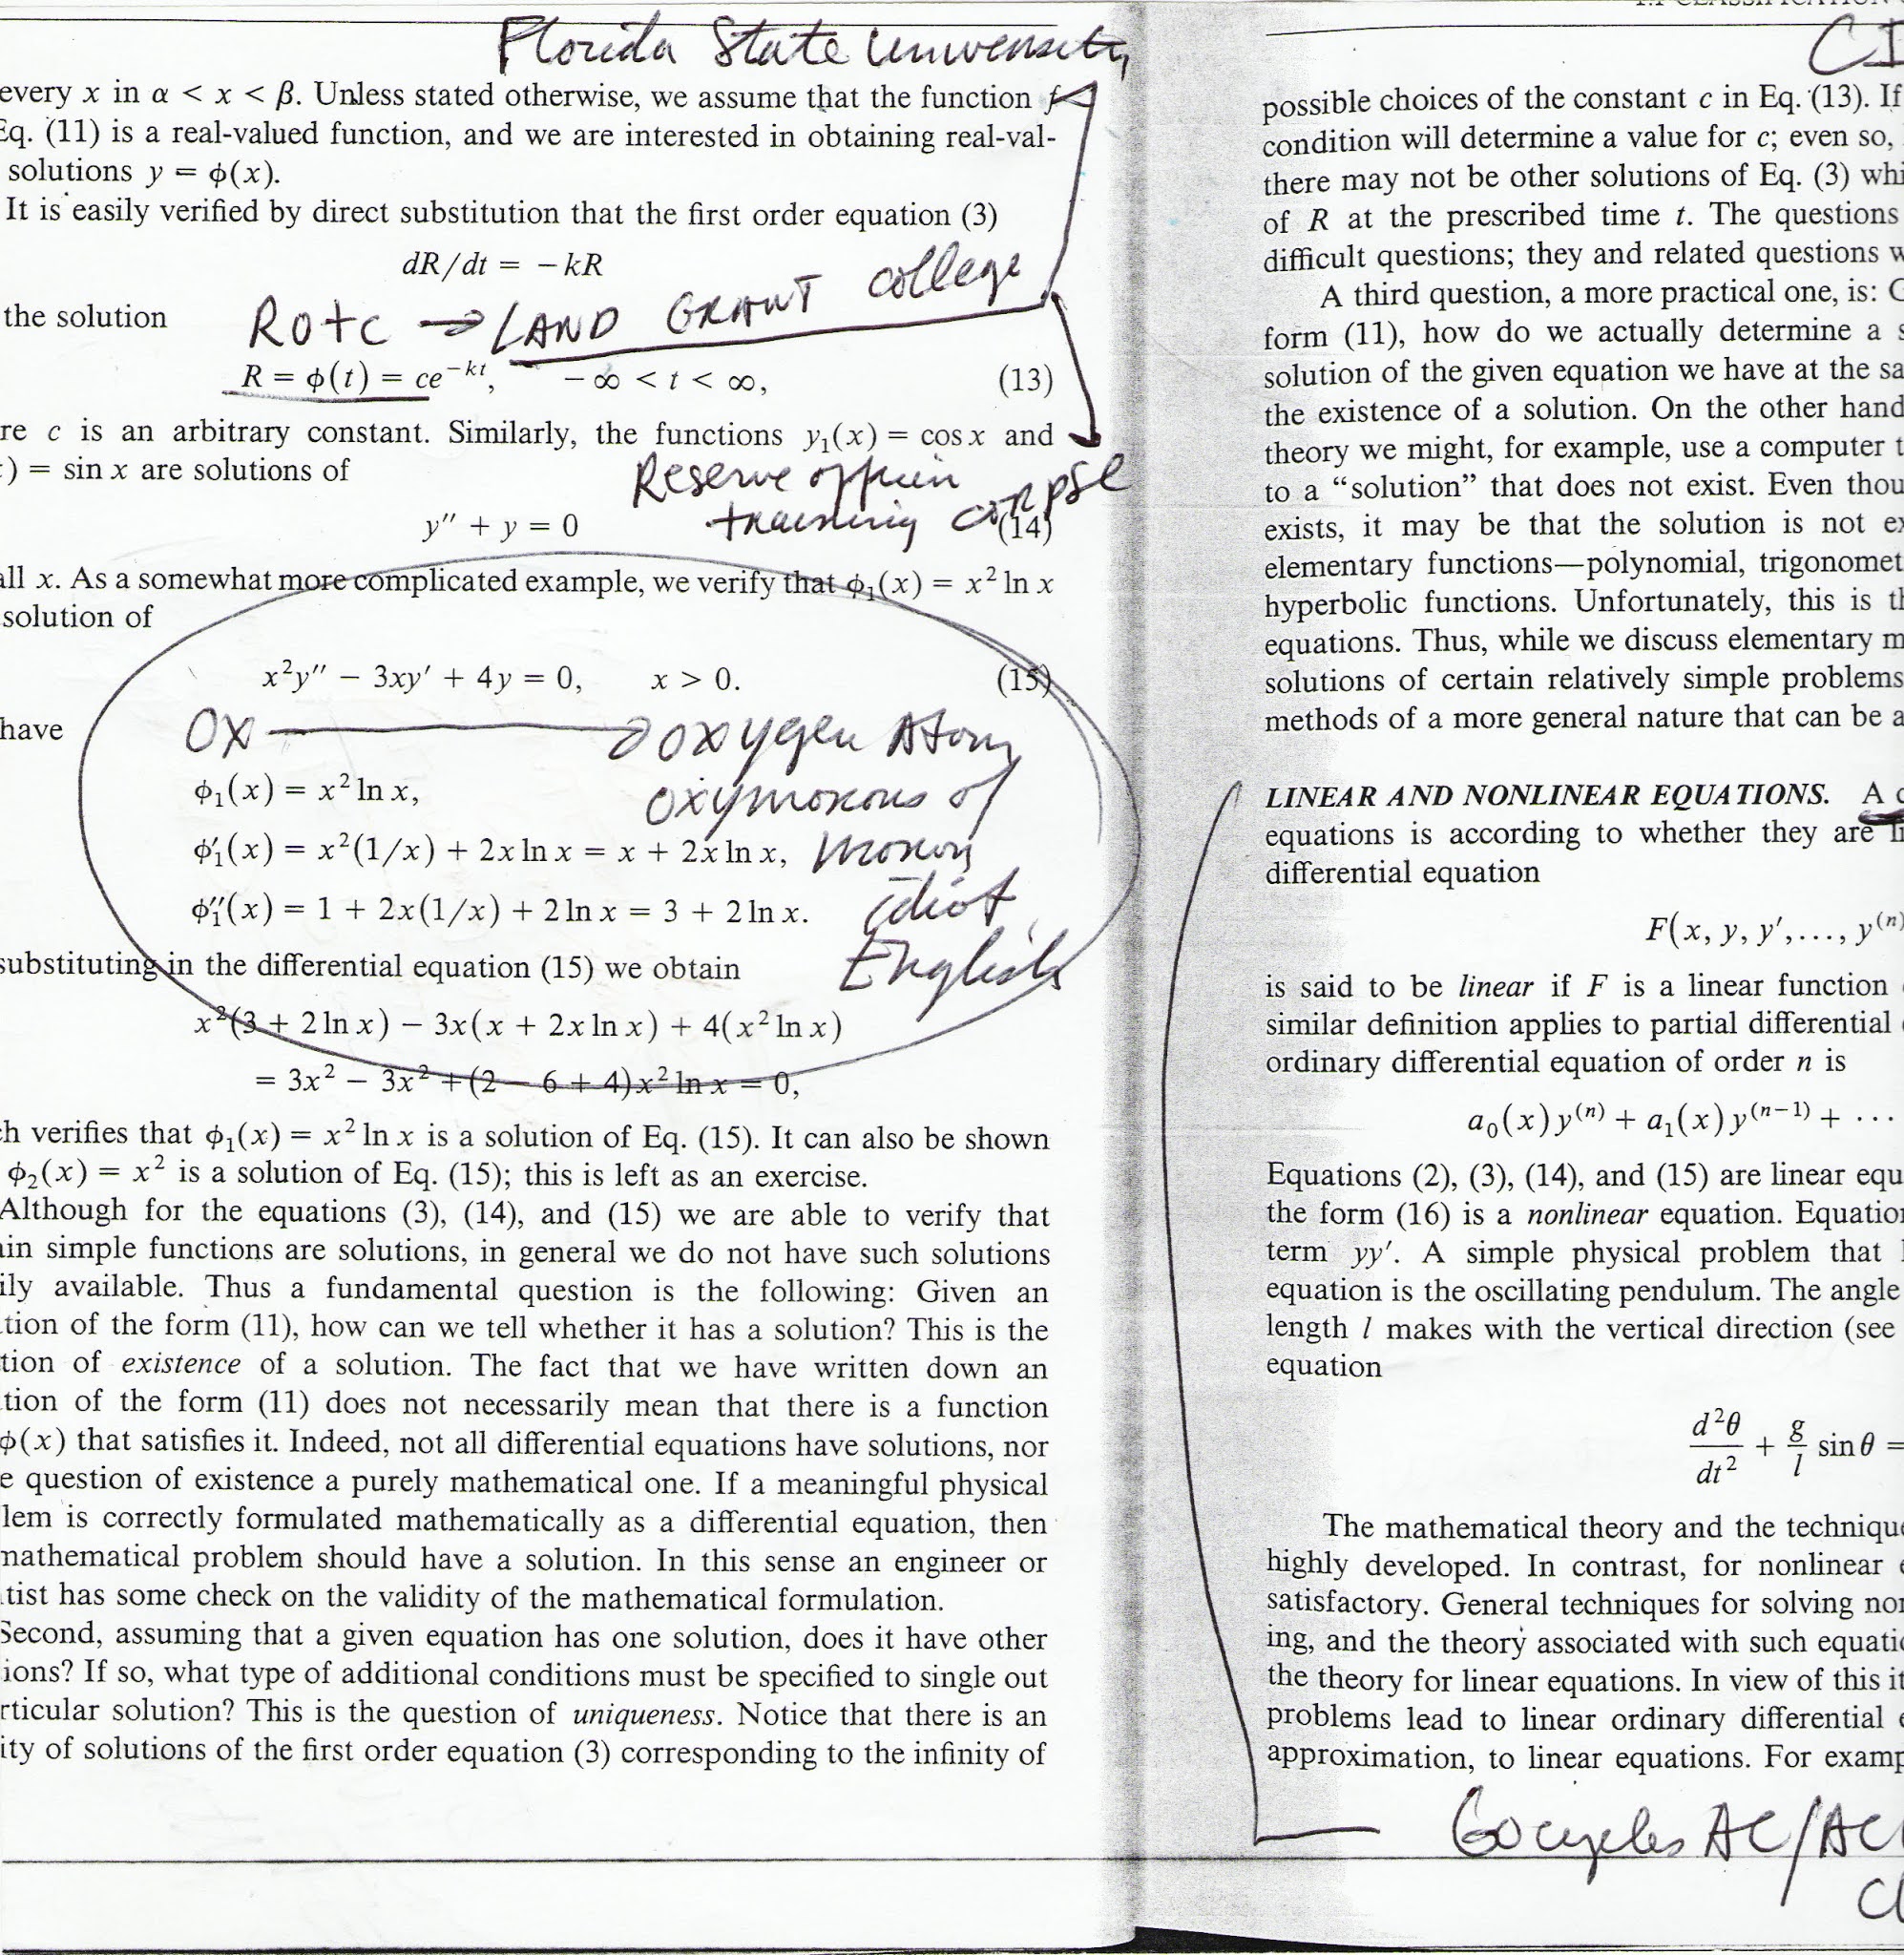 Florida State University
every x in α < x < β. Unless stated otherwise, we assume that the function f
Eq. (11) is a real-valued function, and we are interested in obtaining real-val-
solutions y = ϕ(x).
It is easily verified by direct substitution that the first order equation (3)
dR/dt = −kR
the solution
ROTC → LAND GRANT college
R = ϕ(t) = ce^{−kt}, −∞ < t < ∞, (13)
re c is an arbitrary constant. Similarly, the functions y₁(x) = cos x and
) = sin x are solutions of
Reserve
y″ + y = 0 (14)
training corpse
all x. As a somewhat more complicated example, we verify that ϕ₁(x) = x² ln x
solution of
x²y″ − 3xy′ + 4y = 0, x > 0. (15)
have
OX → oxygen Atom
ϕ₁(x) = x² ln x,
oxymorons of
ϕ₁′(x) = x²(1/x) + 2x ln x = x + 2x ln x,
moron
ϕ₁″(x) = 1 + 2x(1/x) + 2 ln x = 3 + 2 ln x.
idiot
substituting in the differential equation (15) we obtain
English
x²(3 + 2 ln x) − 3x(x + 2x ln x) + 4(x² ln x)
= 3x² − 3x² + (2 − 6 + 4)x² ln x = 0,
ch verifies that ϕ₁(x) = x² ln x is a solution of Eq. (15). It can also be shown
ϕ₂(x) = x² is a solution of Eq. (15); this is left as an exercise.
Although for the equations (3), (14), and (15) we are able to verify that
ain simple functions are solutions, in general we do not have such solutions
ily available. Thus a fundamental question is the following: Given an
tion of the form (11), how can we tell whether it has a solution? This is the
tion of existence of a solution. The fact that we have written down an
tion of the form (11) does not necessarily mean that there is a function
ϕ(x) that satisfies it. Indeed, not all differential equations have solutions, nor
e question of existence a purely mathematical one. If a meaningful physical
lem is correctly formulated mathematically as a differential equation, then
mathematical problem should have a solution. In this sense an engineer or
tist has some check on the validity of the mathematical formulation.
Second, assuming that a given equation has one solution, does it have other
ions? If so, what type of additional conditions must be specified to single out
rticular solution? This is the question of uniqueness. Notice that there is an
ity of solutions of the first order equation (3) corresponding to the infinity of
CI
possible choices of the constant c in Eq. (13). If
condition will determine a value for c; even so,
there may not be other solutions of Eq. (3) whi
of R at the prescribed time t. The questions
difficult questions; they and related questions w
A third question, a more practical one, is: G
form (11), how do we actually determine a s
solution of the given equation we have at the sa
the existence of a solution. On the other hand
theory we might, for example, use a computer t
to a “solution” that does not exist. Even thou
exists, it may be that the solution is not ex
elementary functions—polynomial, trigonomet
hyperbolic functions. Unfortunately, this is th
equations. Thus, while we discuss elementary m
solutions of certain relatively simple problems
methods of a more general nature that can be a
LINEAR AND NONLINEAR EQUATIONS. A c
equations is according to whether they are li
differential equation
F(x, y, y′,..., y⁽ⁿ⁾
is said to be linear if F is a linear function
similar definition applies to partial differential
ordinary differential equation of order n is
a₀(x)y⁽ⁿ⁾ + a₁(x)y⁽ⁿ⁻¹⁾ + ···
Equations (2), (3), (14), and (15) are linear equ
the form (16) is a nonlinear equation. Equation
term yy′. A simple physical problem that l
equation is the oscillating pendulum. The angle
length l makes with the vertical direction (see
equation
d²θ/dt² + g/l sin θ =
The mathematical theory and the technique
highly developed. In contrast, for nonlinear e
satisfactory. General techniques for solving non
ing, and the theory associated with such equatio
the theory for linear equations. In view of this it
problems lead to linear ordinary differential e
approximation, to linear equations. For examp
60 cycles AC/AC